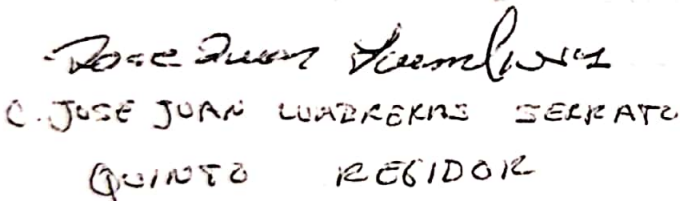 Jose Juan
C. JOSE JUAN SERRATO
QUINTO REGIDOR